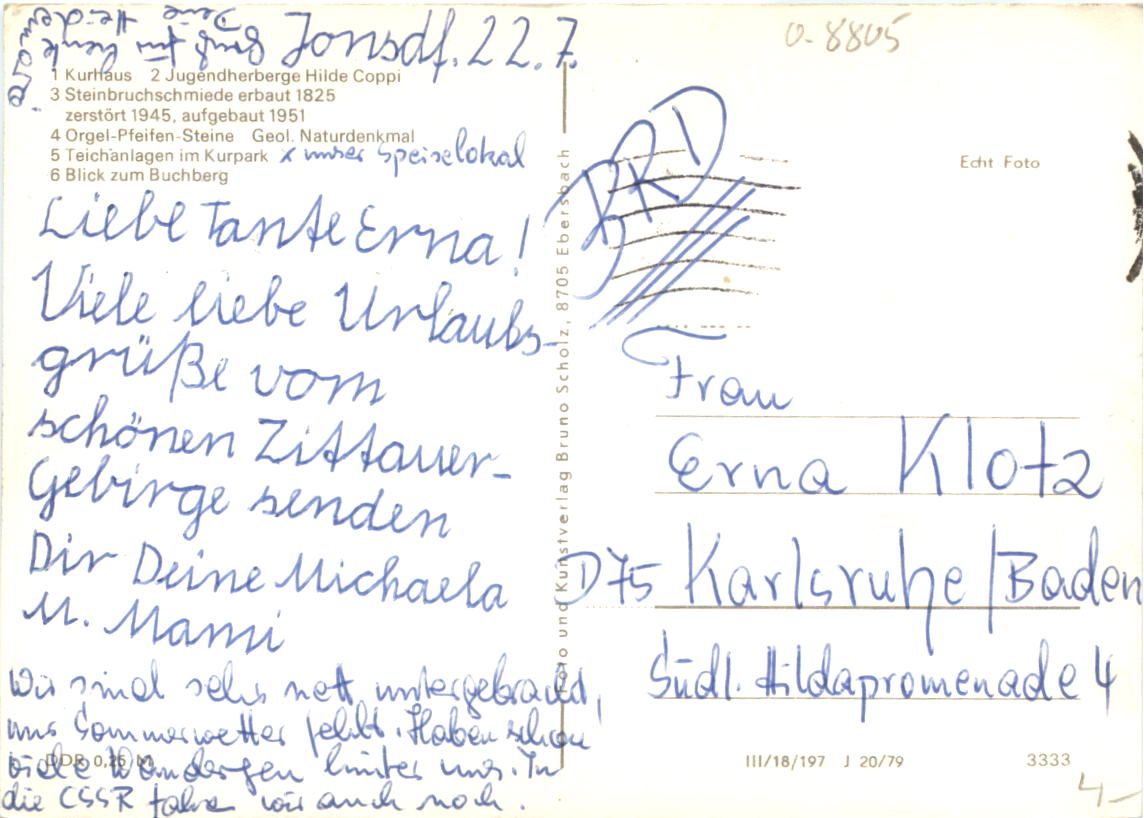 Jonsdf. 22.7.
1 Kurhaus 2 Jugendherberge Hilde Coppi
3 Steinbruchschmiede erbaut 1825
zerstört 1945, aufgebaut 1951
4 Orgel-Pfeifen-Steine Geol. Naturdenkmal
5 Teichanlagen im Kurpark x unser Speiselokal
6 Blick zum Buchberg
Liebe Tante Erna!
Viele liebe Urlaubs-
grüße vom
schönen Zittauer-
Gebirge senden
Dir Deine Michaela
u. Mami
Wir sind sehr nett untergebracht,
nur Sommerwetter fehlt. Haben schon
viele Wanderungen hinter uns. In
die CSSR fahren wir auch noch.
Gruß für heute
Deine
DDR 0,25 M
Foto und Kunstverlag Bruno Scholz, 8705 Ebersbach
0-8805
BRD
Echt Foto
Frau
Erna Klotz
D75 Karlsruhe/Baden
Südl. Hildapromenade 4
III/18/197 J 20/79 3333
4-